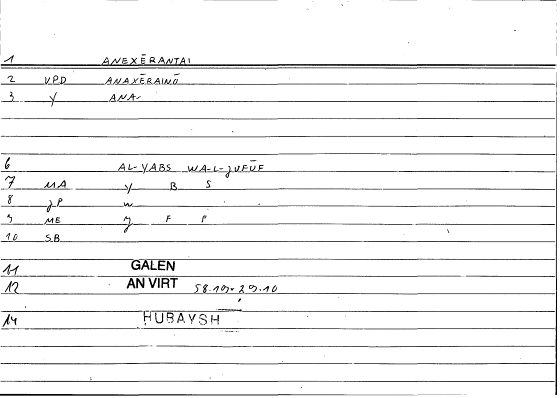 1 ANEXĒRANTAI
2 V.P.D ANAXĒRAINŌ
3 Y ANA-
6 AL-YABS WA-L-JUFŪF
7 MA Y B S
8 JP W
9 ME J F F
10 SB
11 GALEN
12 AN VIRT 58.19 29.10
14 HUBAYSH